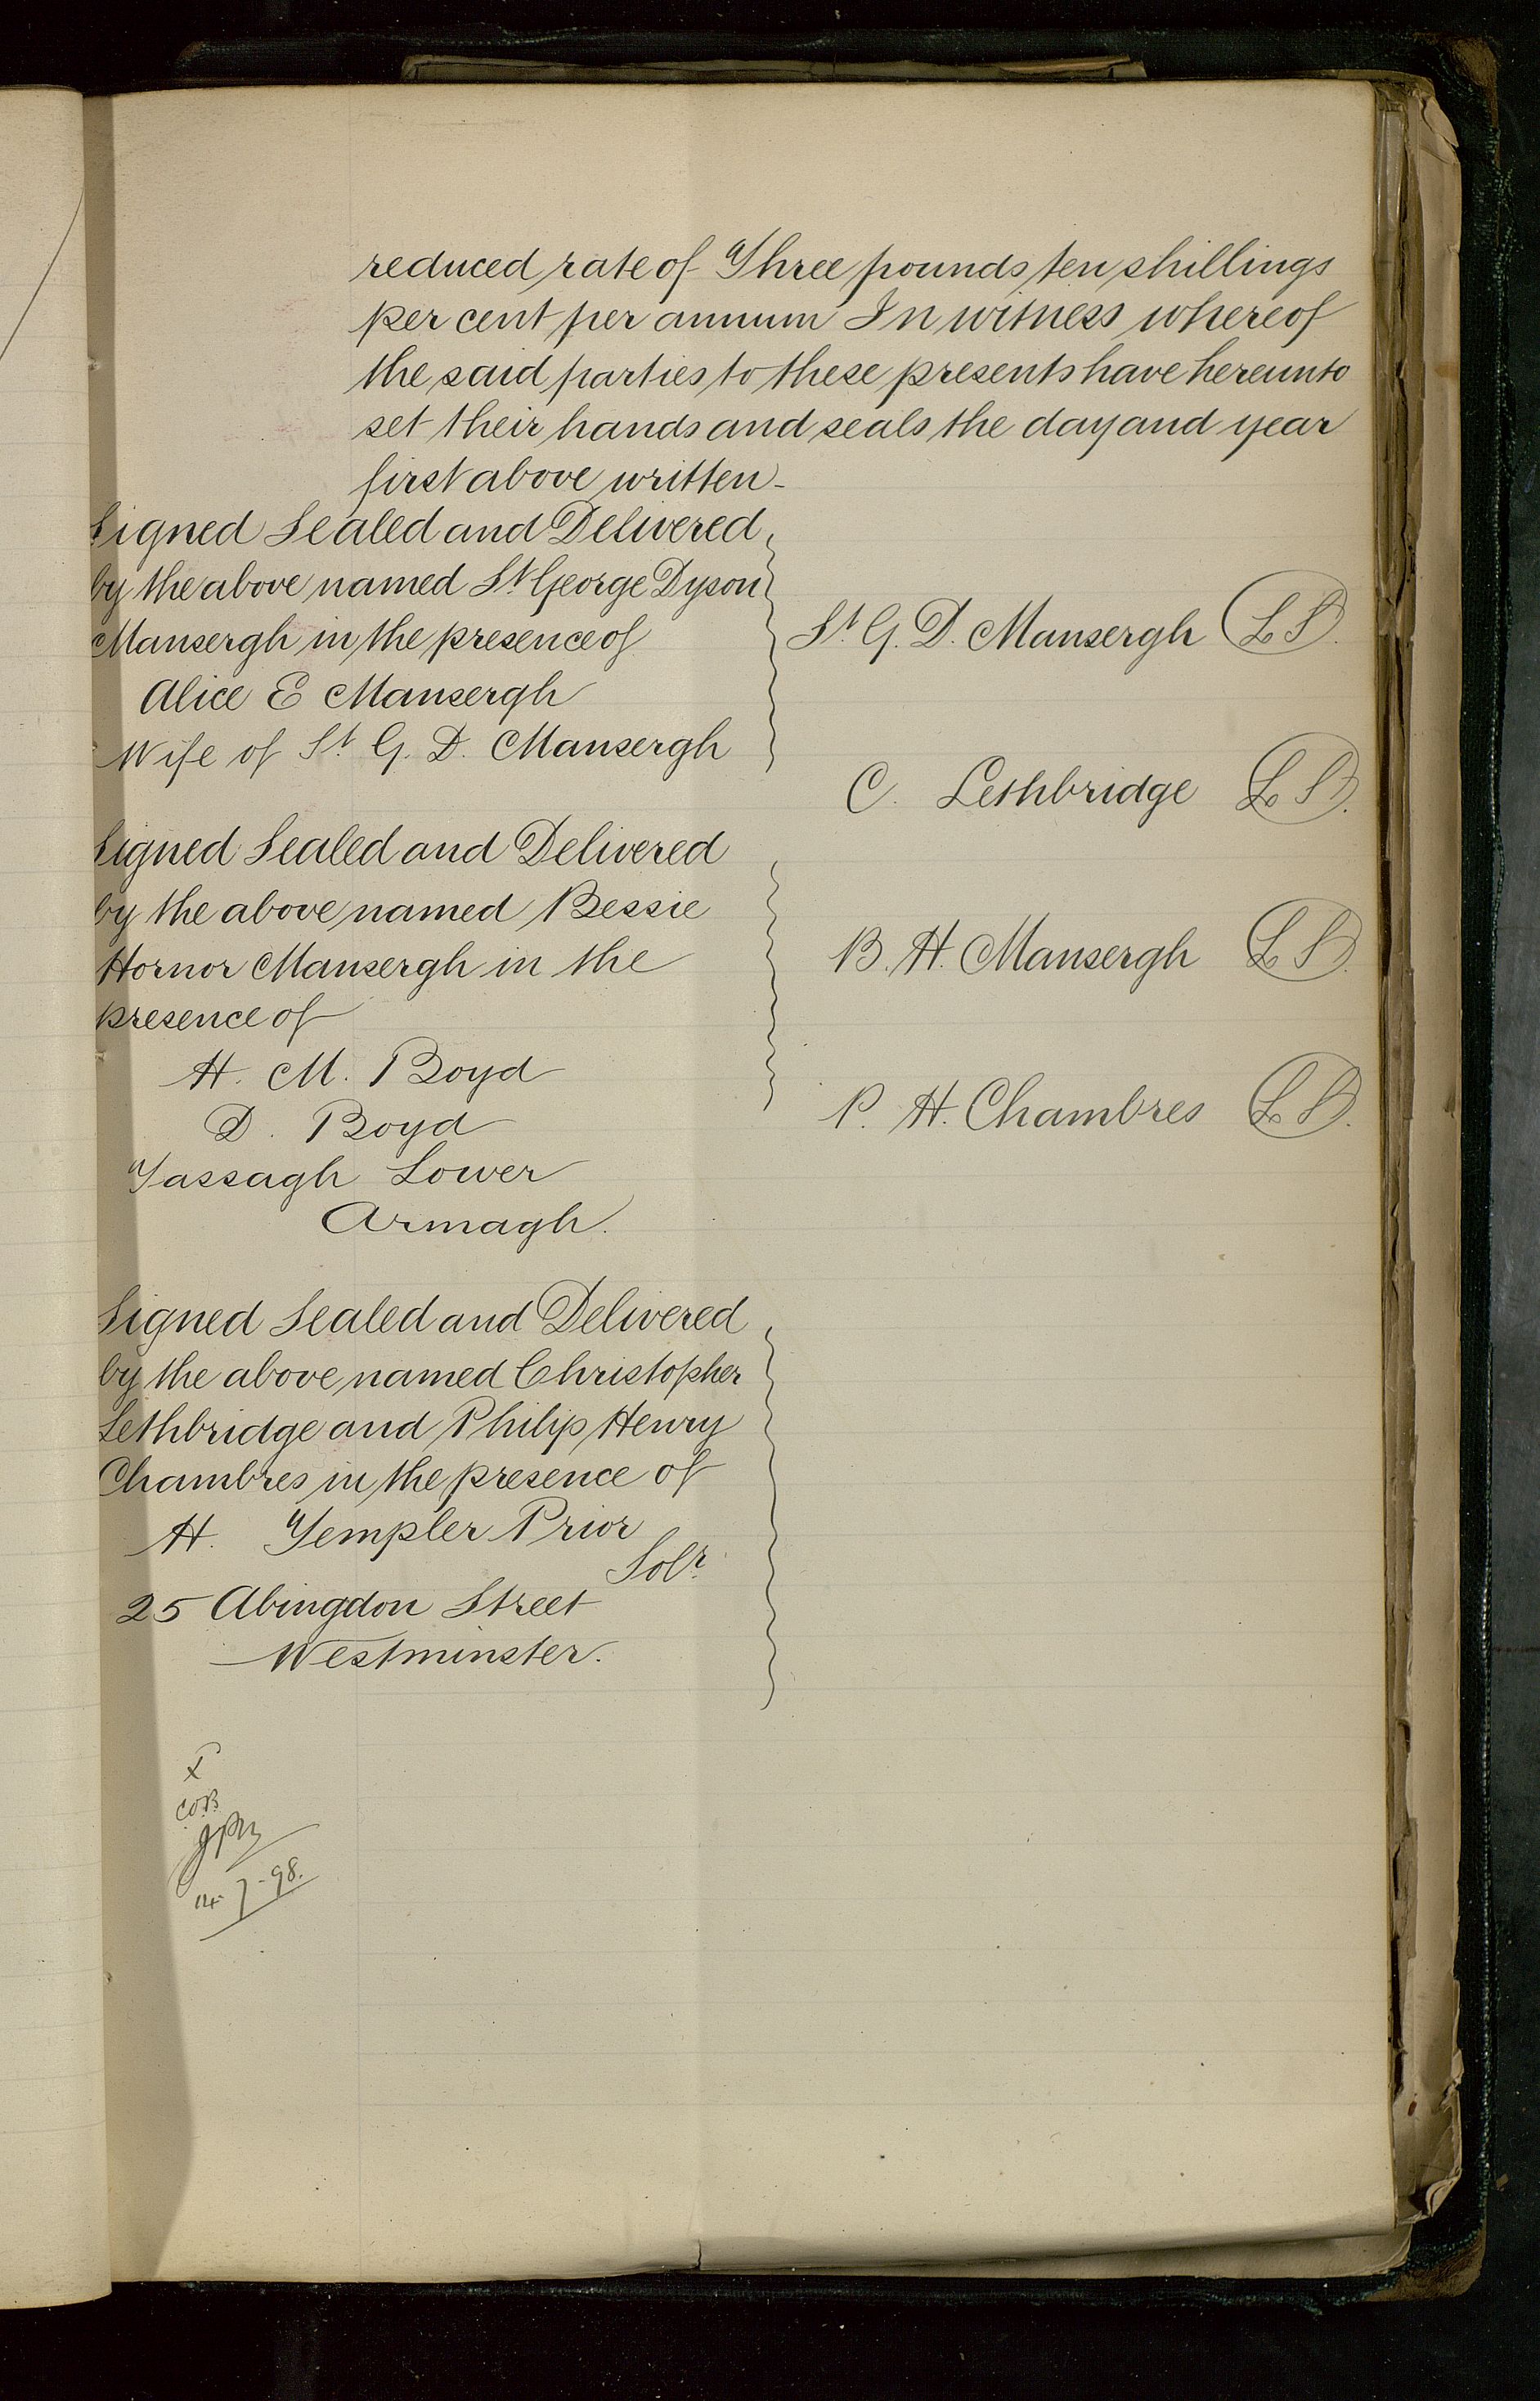 reduced rate of Three pounds ten shillings
per cent per annum In witness whereof
the said parties to these presents have hereunto
set their hands and seals the day and year
first above written -
Signed Sealed and Delivered
by the above named St. George Dyson
Mansergh in the presence of
Alice E Mansergh
Wife of St. G. D. Mansergh
St. G. D. Mansergh L S.
C. Lethbridge L S.
Signed Sealed and Delivered
by the above named Bessie
Hornor Mansergh in the
presence of
H. M. Boyd
D. Boyd
Tassagh Lower
Armagh.
B. H. Mansergh L S.
P. H. Chambres L S.
Signed Sealed and Delivered
by the above named Christopher
Lethbridge and Philip Henry
Chambres in the presence of
H. Templer Prior
Solr.
25 Abingdon Street
Westminster.
14-7-98.